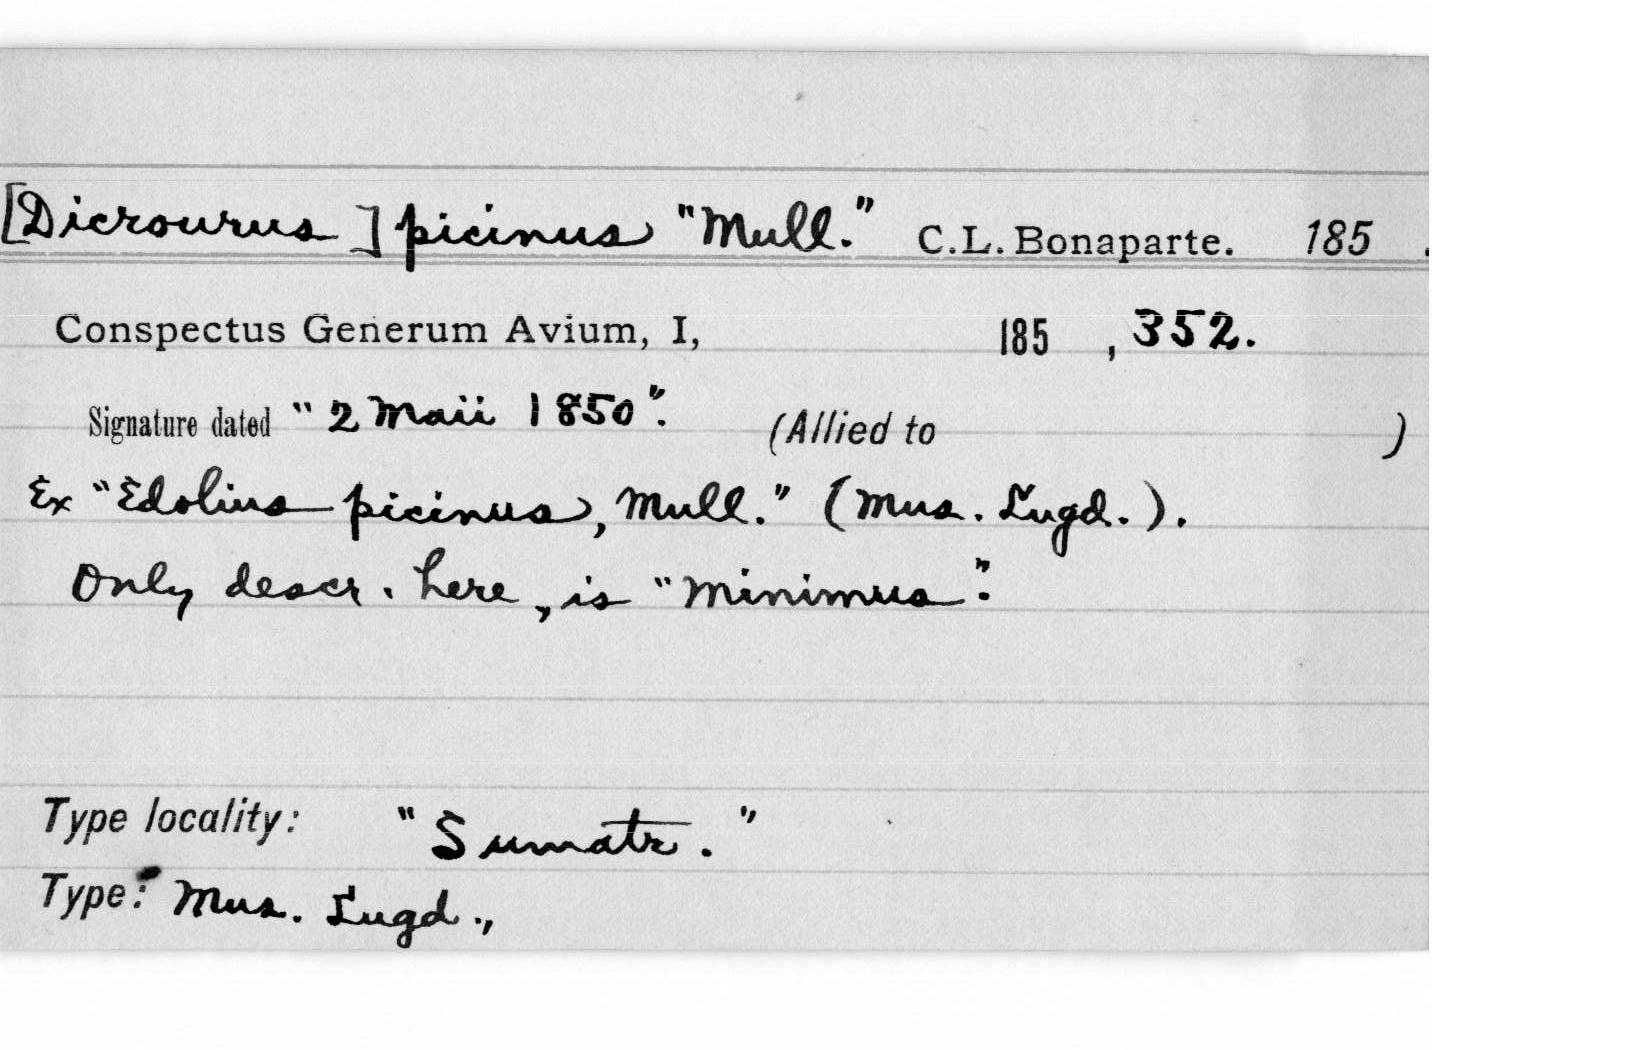 [Dicrourus] picinus "Mull." C.L. Bonaparte. 185 .
Conspectus Generum Avium, I, 185 , 352.
Signature dated "2 Maii 1850". (Allied to )
Ex "Edolius picinus, Mull." (Mus. Lugd.).
Only descr. here, is "minimus".
Type locality: "Sumatr."
Type: Mus. Lugd.,